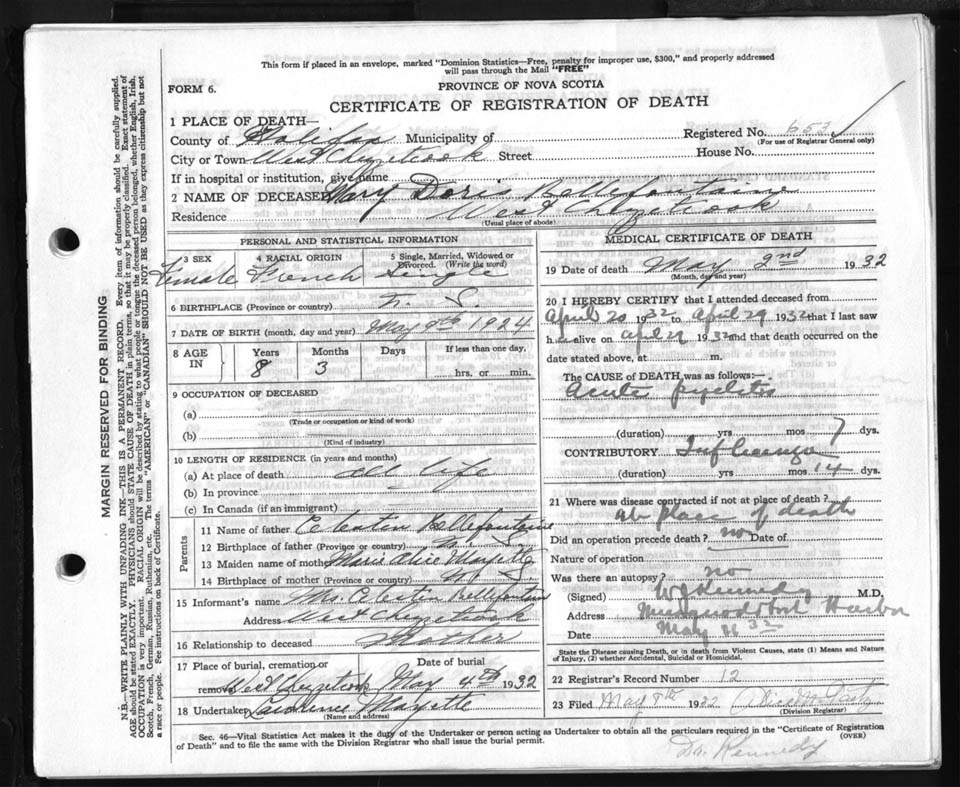 This form if placed in an envelope, marked "Dominion Statistics—Free, penalty for improper use, $300," and properly addressed
will pass through the Mail "FREE"
FORM 6.
PROVINCE OF NOVA SCOTIA
CERTIFICATE OF REGISTRATION OF DEATH
1 PLACE OF DEATH—
County of Halifax Municipality of
Registered No. 652
(For use of Registrar General only)
City or Town West Chezetcook Street House No.
If in hospital or institution, give name
2 NAME OF DECEASED Mary Doris Bellefontaine
Residence West Chezetcook
(Usual place of abode)
PERSONAL AND STATISTICAL INFORMATION
3 SEX 4 RACIAL ORIGIN 5 Single, Married, Widowed or
Divorced. (Write the word)
Female French Single
6 BIRTHPLACE (Province or country) N. S.
7 DATE OF BIRTH (month, day and year) May 8th 1924
8 AGE IN Years Months Days If less than one day,
8 3 hrs. or min.
9 OCCUPATION OF DECEASED
(a)
(Trade or occupation or kind of work)
(b)
(Kind of industry)
10 LENGTH OF RESIDENCE (in years and months)
(a) At place of death all life
(b) In province
(c) In Canada (if an immigrant)
Parents
11 Name of father Celestin Bellefontaine
12 Birthplace of father (Province or country) N. S.
13 Maiden name of mother Marie Alice Mayette
14 Birthplace of mother (Province or country) N. S.
15 Informant's name Mrs. Celestin Bellefontaine
Address West Chezetcook
16 Relationship to deceased Mother
17 Place of burial, cremation or Date of burial
removal West Chezetcook May 4th 1932
18 Undertaker Lawrence Mayette
(Name and address)
MEDICAL CERTIFICATE OF DEATH
19 Date of death May 2nd 1932
(Month, day and year)
20 I HEREBY CERTIFY that I attended deceased from
April 20 1932 to April 29 1932 that I last saw
h alive on April 29 1932 and that death occurred on the
date stated above, at m.
The CAUSE OF DEATH was as follows:—
Acute pyelitis
(duration) yrs mos 7 dys.
CONTRIBUTORY Influenza
(duration) yrs mos 14 dys.
21 Where was disease contracted if not at place of death?
at place of death
Did an operation precede death? no Date of
Nature of operation
Was there an autopsy? no
(Signed) Kennedy M.D.
Address Musquodoboit Harbor
Date May 32
State the Disease causing Death, or in death from Violent Causes, state (1) Means and Nature
of Injury, (2) whether Accidental, Suicidal or Homicidal.
22 Registrar's Record Number 12
23 Filed May 8th 1932
(Division Registrar)
Sec. 46—Vital Statistics Act makes it the duty of the Undertaker or person acting as Undertaker to obtain all the particulars required in the "Certificate of Registration
of Death" and to file the same with the Division Registrar who shall issue the burial permit.
(OVER)
Dr. Kennedy
MARGIN RESERVED FOR BINDING
N.B.—WRITE PLAINLY WITH UNFADING INK—THIS IS A PERMANENT RECORD. Every item of information should be carefully supplied.
AGE should be stated EXACTLY. PHYSICIANS should STATE CAUSE OF DEATH in plain terms, so that it may be properly classified. Exact statement of
OCCUPATION is very important. RACIAL ORIGIN will be described by stating to what people or tongue the deceased person belonged, whether English, Irish,
Scotch, French, German, Russian, Ruthenian, etc. The terms "AMERICAN" or "CANADIAN" SHOULD NOT BE USED as they express citizenship but not
a race or people. See instructions on back of Certificate.